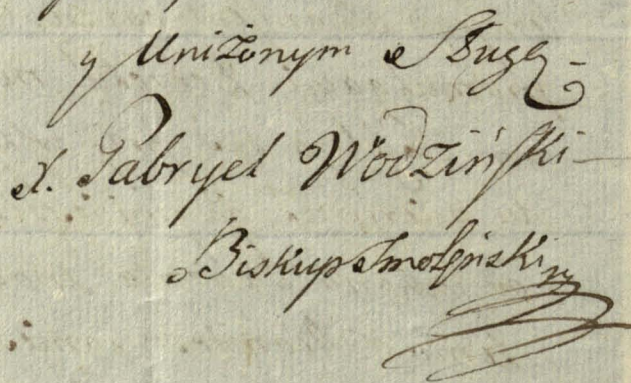 y Uniżonym Sługą
X. Gabryel Wodziński
Biskup Smoleński